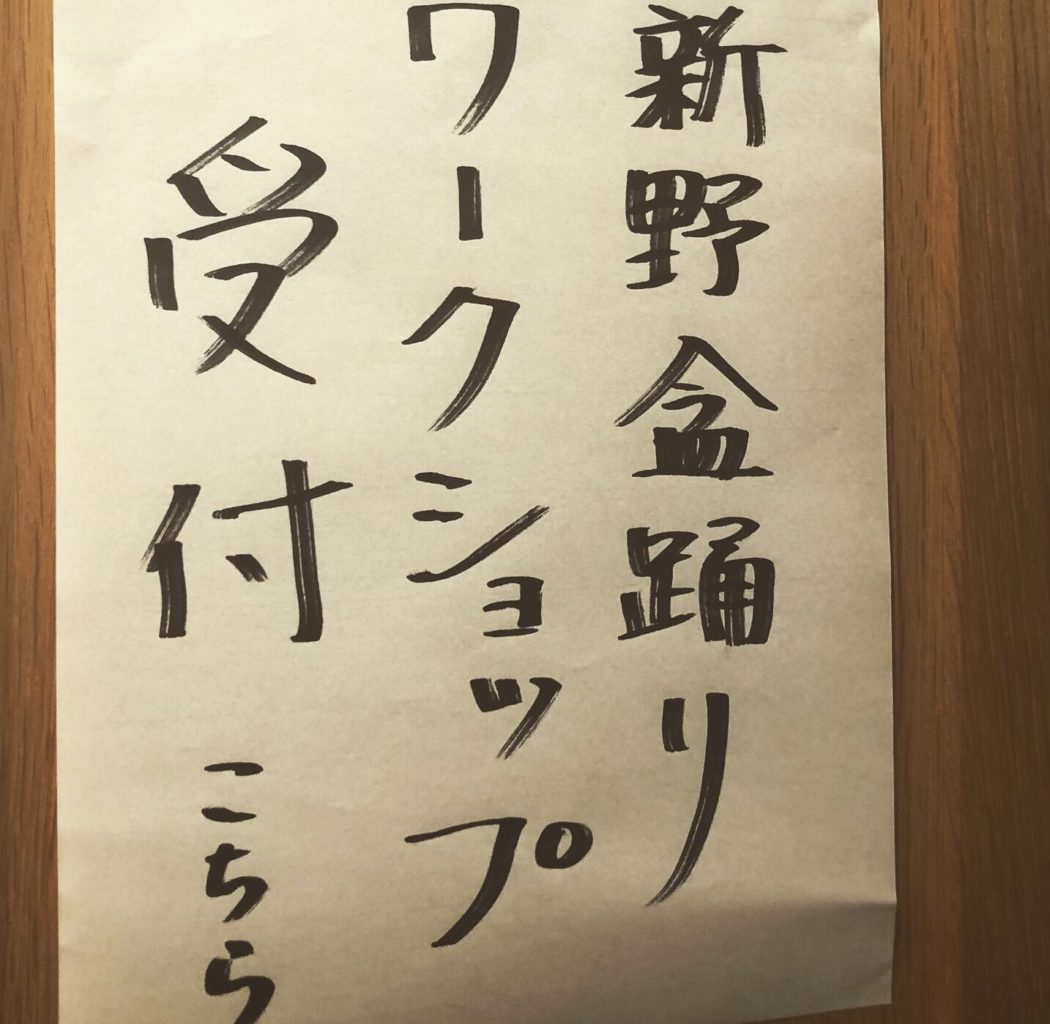 新野盆踊り
ワークショップ
受付こちら